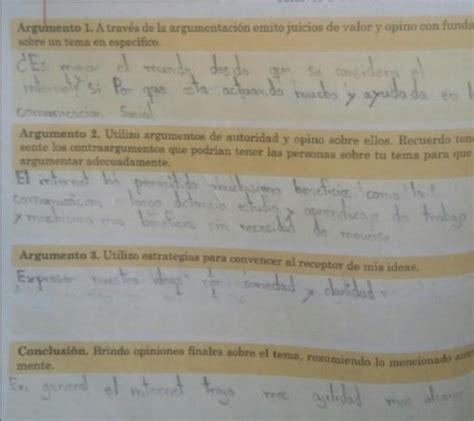 Argumento 1. A través de la argumentación emito juicios de valor y opino con funda
sobre un tema en específico.
¿Es mejor el mundo desde que se considera el
internet? si Por que esta actuando mucho y ayudado en l
comunicacion Social
Argumento 2. Utilizo argumentos de autoridad y opino sobre ellos. Recuerdo ten
sente los contraargumentos que podrían tener las personas sobre tu tema para que
argumentar adecuadamente.
El internet ha permitido muchisimo beneficios como la
comunicacion a larga distancia estudio y aprendizaje de trabajo
y muchisimo mas beneficios sin necesidad de moverse
Argumento 3. Utilizo estrategias para convencer al receptor de mis ideas.
Expresar nuestra ideas con seriedad y claridad
Conclusión. Brindo opiniones finales sobre el tema, resumiendo lo mencionado
mente.
En general el internet trajo mas agilidad mas